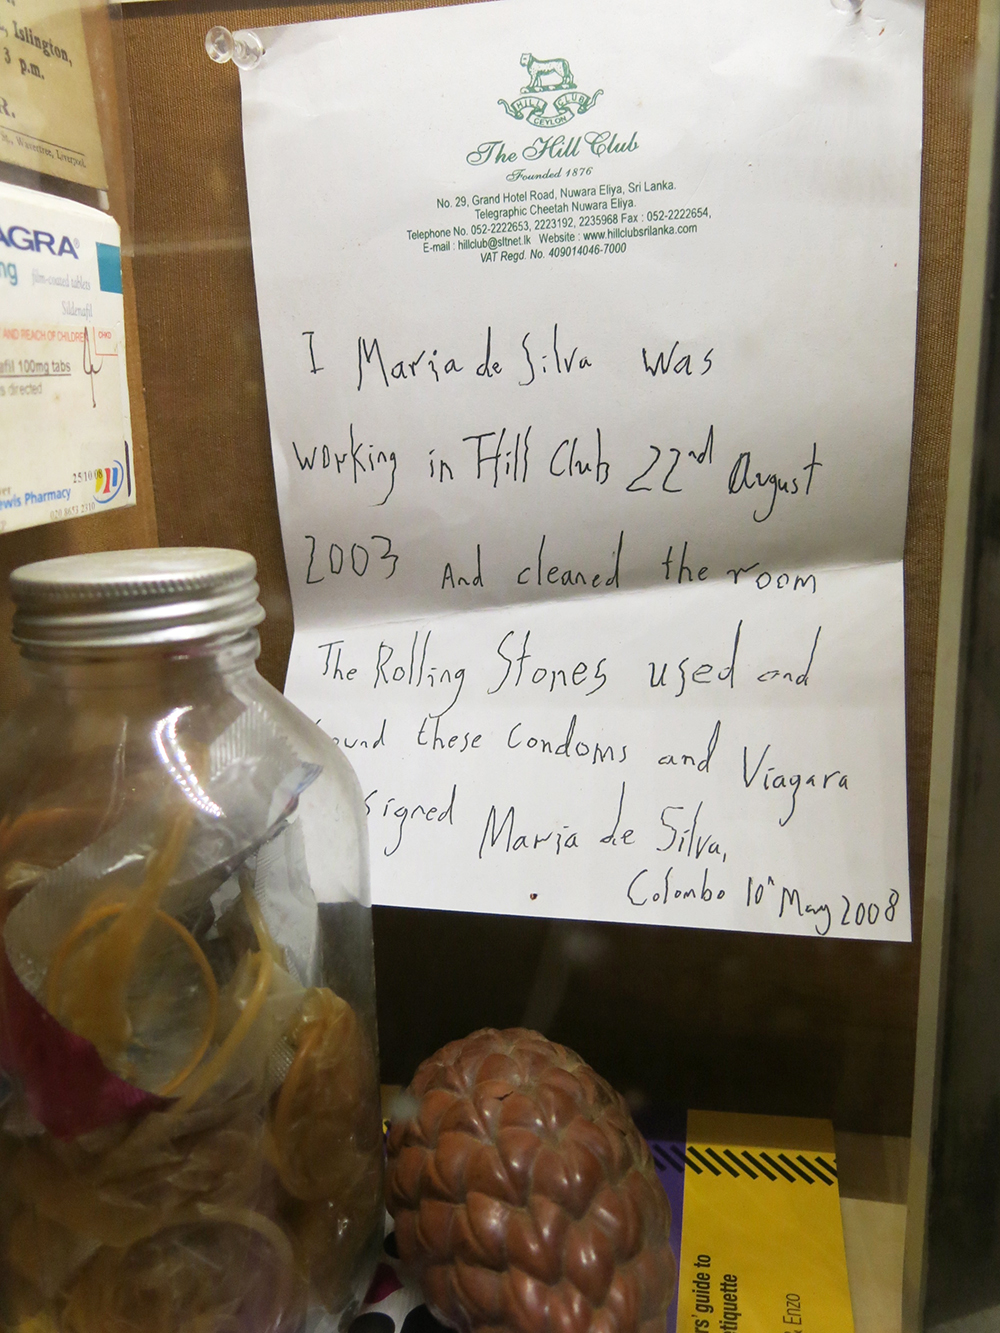 , Islington,
3 p.m.
R.
St., Wavertree, Liverpool.
AGRA®
mg
film-coated tablets
Sildenafil
AND REACH OF CHILDREN
CHKD
afil 100mg tabs
s directed
25 10 08
ewis Pharmacy
020 8653 2310
HILL CLUB
CEYLON
The Hill Club
Founded 1876
No. 29, Grand Hotel Road, Nuwara Eliya, Sri Lanka.
Telegraphic Cheetah Nuwara Eliya.
Telephone No. 052-2222653, 2223192, 2235968 Fax : 052-2222654,
E-mail : hillclub@sltnet.lk Website : www.hillclubsrilanka.com
VAT Regd. No. 409014046-7000
I Maria de Silva was
working in Hill Club 22nd August
2003 And cleaned the room
The Rolling Stones used and
ound these condoms and Viagara
signed Maria de Silva,
Colombo 10th May 2008
rs' guide to
etiquette
& Enzo